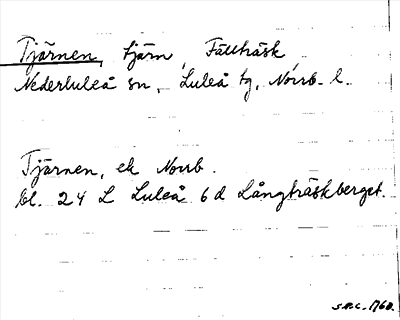 Tjärnen, tjärn, Fällträsk,
Nederluleå sn, Luleå tg, Norrb. l.
Tjärnen, ek Norrb.
bl. 24 L Luleå 6 d Långträskberget.
1960.